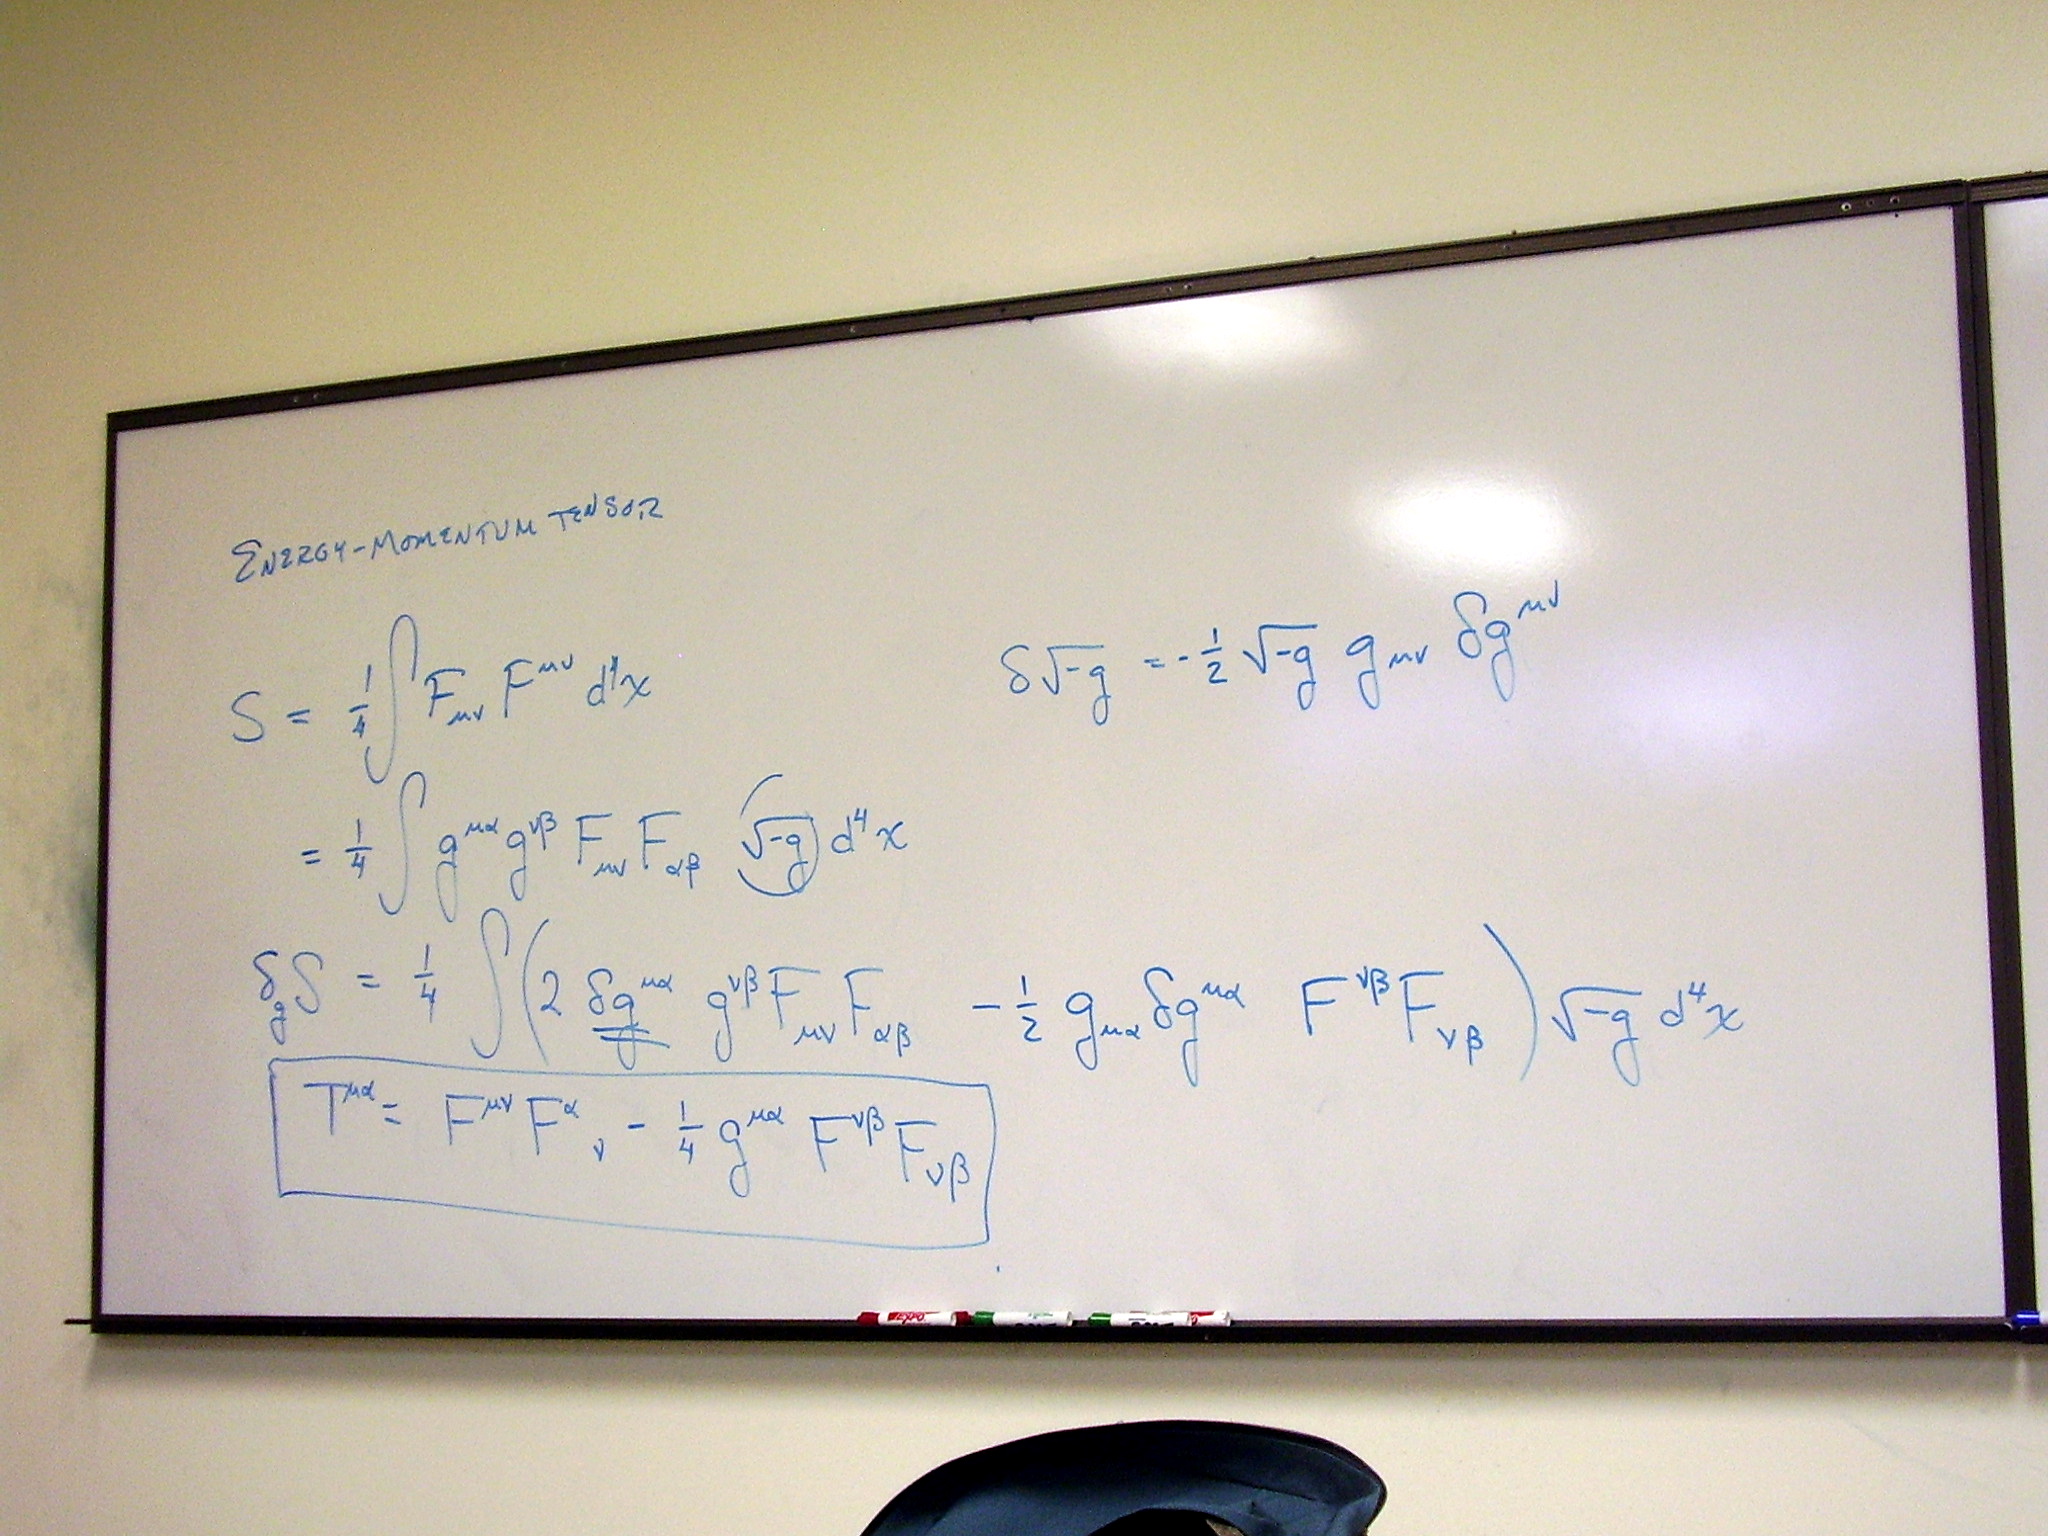 ENERGY-MOMENTUM TENSOR
S = 1/4 ∫ F_μν F^μν d⁴x
δ√-g = -1/2 √-g g_μν δg^μν
= 1/4 ∫ g^μα g^νβ F_μν F_αβ (√-g) d⁴x
δ_g S = 1/4 ∫ (2 δg^μα g^νβ F_μν F_αβ - 1/2 g_μα δg^μα F^νβ F_νβ) √-g d⁴x
T^μα = F^μν F^α_ν - 1/4 g^μα F^νβ F_νβ
EXPO